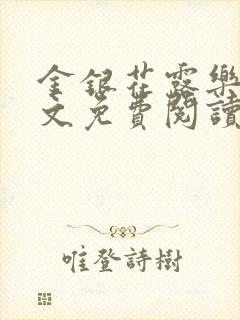 金銀花露樂
文免費閱讀
唯登詩樹